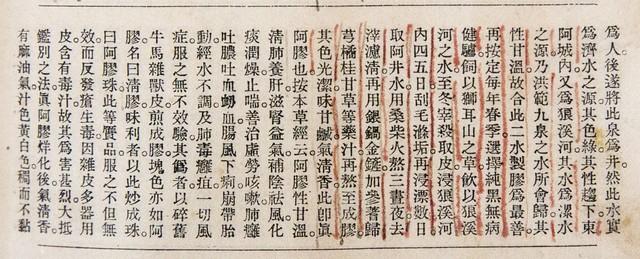 爲人後遂將此泉爲井然此水實
爲濟水之源其色綠其性趨下東
阿城內又爲狼溪河其水爲漯水
之源乃洪範九泉之水所會歸其
性甘溫故合此二水製膠爲最善
再按定每年春季選擇純黑無病
健驢飼以獅耳山之草飲以狼溪
河之水至冬宰殺取皮浸狼溪河
內四五日刮毛滌垢再浸漂數日
取阿井水用桑柴火熬三晝夜去
滓濾清再用銀鍋金鏟加參蓍歸
芎橘桂甘草等藥汁再熬至成膠
其色光潔味甘鹹氣清香此卽眞
阿膠也按本草經云阿膠性甘溫
清肺養肝滋腎益氣補陰祛風化
痰潤燥止喘善治虛勞咳嗽肺癰
吐膿吐血衂血腸風下痢崩帶胎
動經水不調及肺毒癰疽一切風
症服之無不效驗其僞者以碎舊
牛馬雜獸皮煎成膠塊色亦如阿
膠名曰清膠味利者以此炒成珠
曰阿膠珠此等贋品服之不但無
效而反發瘡生毒因雜皮多器用
皮含有毒汁故其爲害甚烈大抵
鑑別之法眞阿膠烊化後氣清香
有麻油氣汁色黃白色稠而不黏